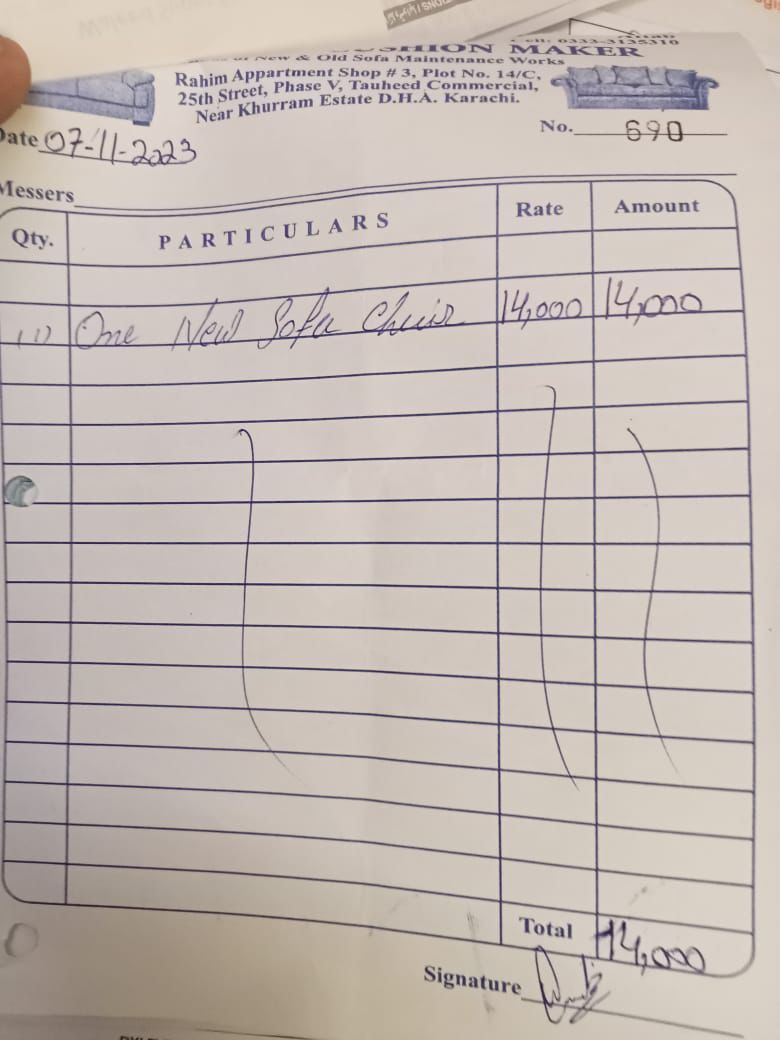 Cell: 0333-3135310
MAKER
New & Old Sofa Maintenance Works
Rahim Appartment Shop # 3, Plot No. 14/C,
25th Street, Phase V, Tauheed Commercial,
Near Khurram Estate D.H.A. Karachi.
Date 07-11-2023
No. 690
Messers
Qty. PARTICULARS Rate Amount
(1) One New Sofa Chair 14,000 14,000
Total 14,000
Signature